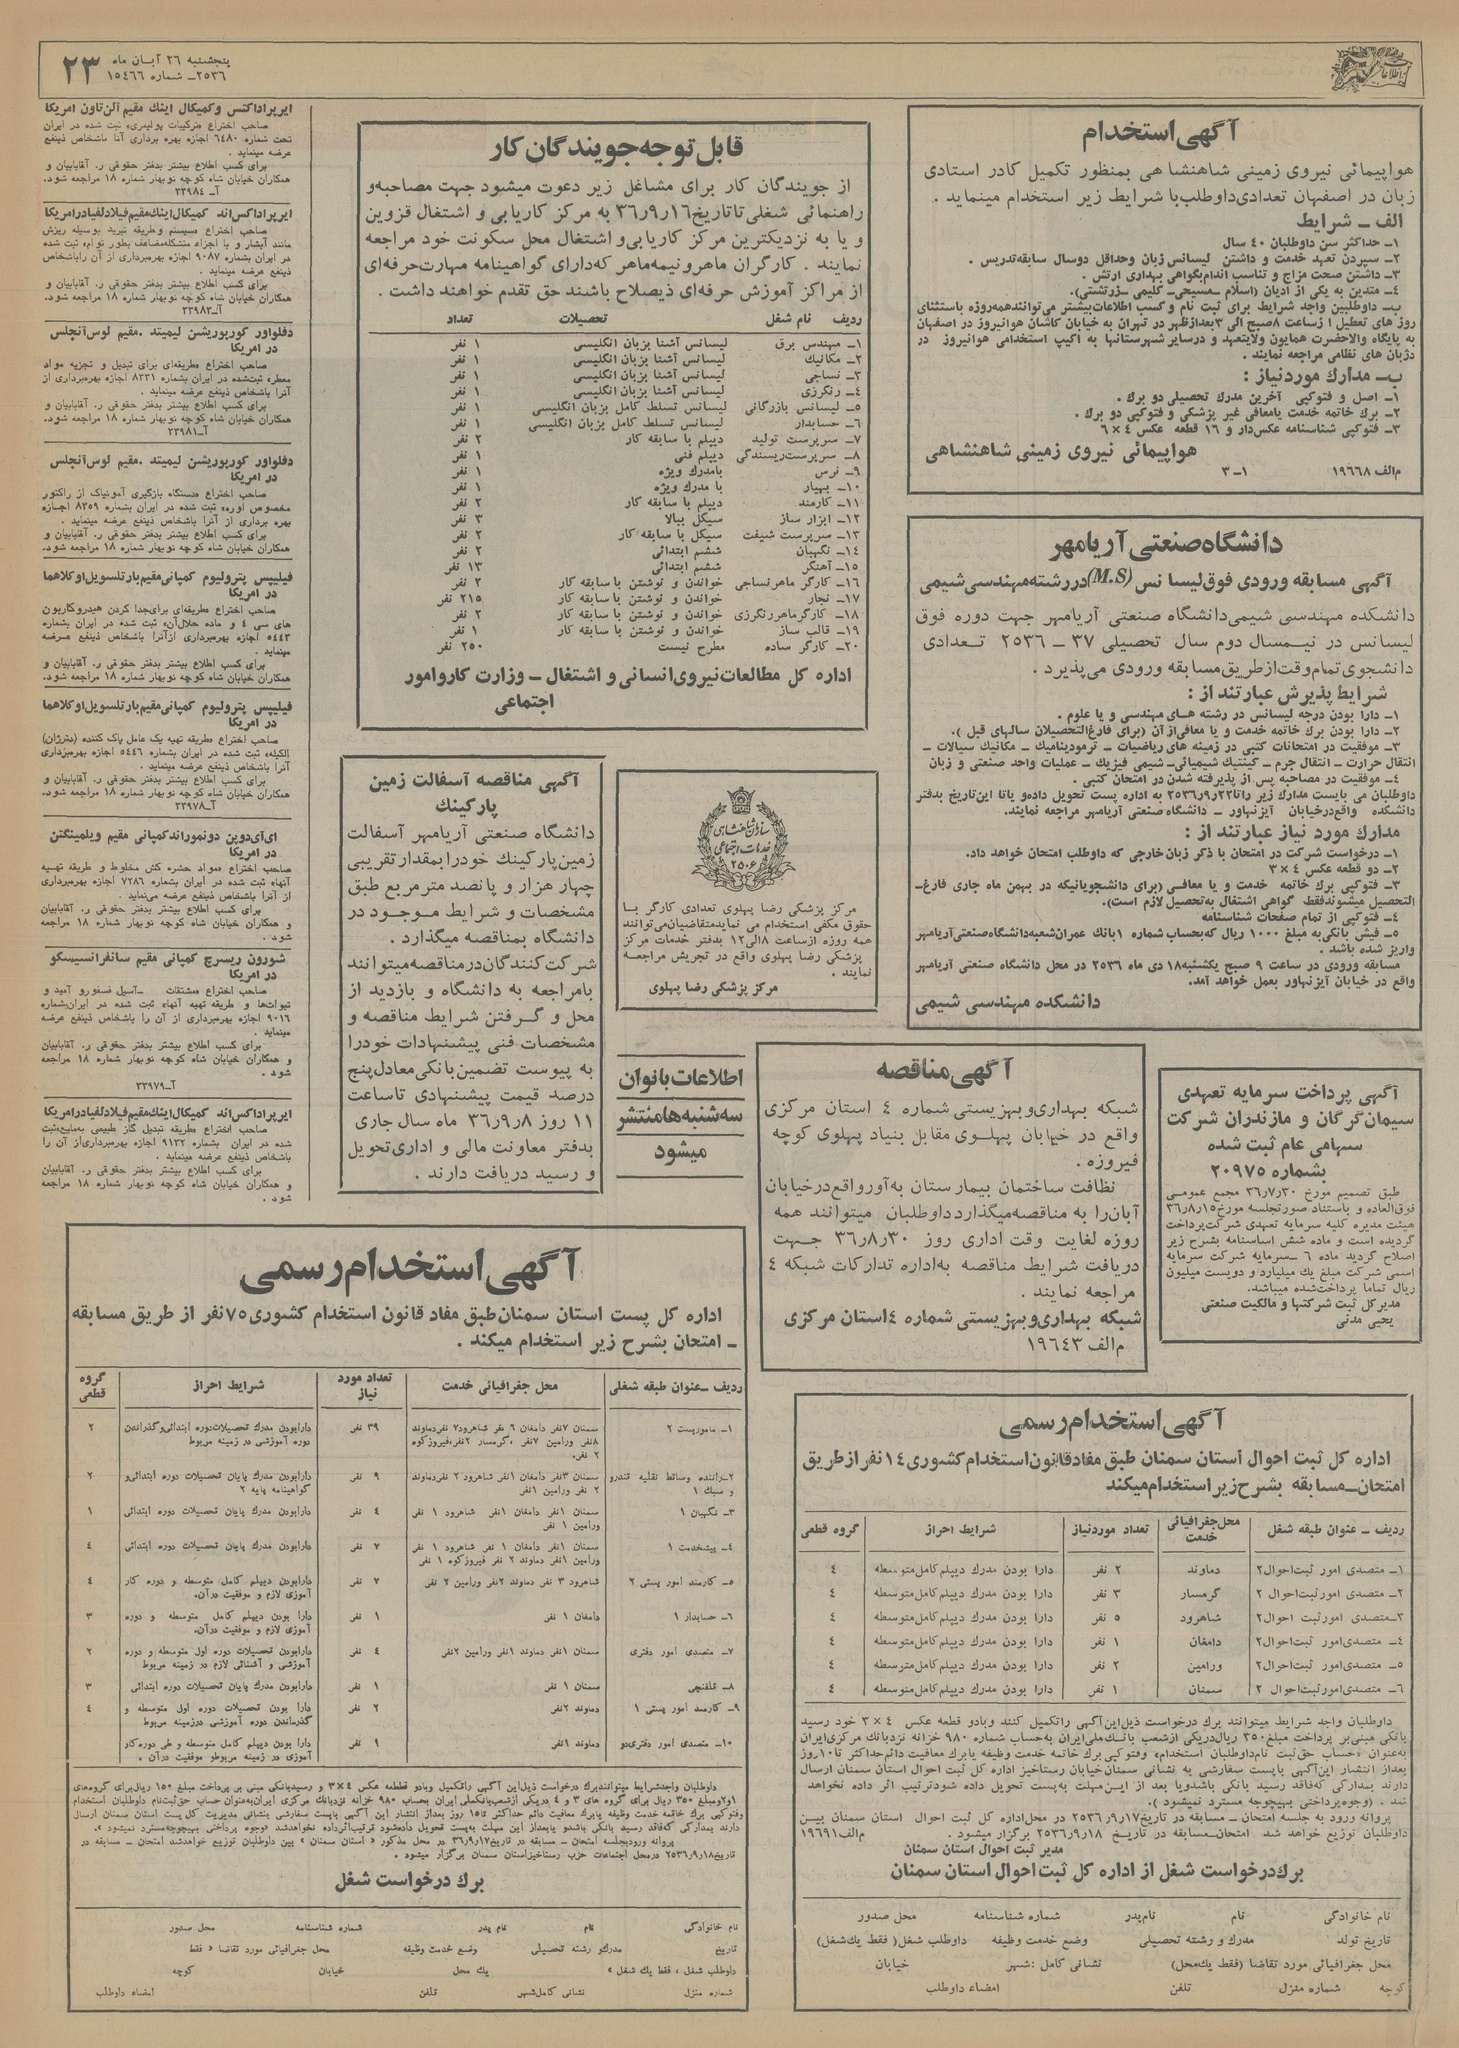 اطلاعات
پنجشنبه ۲۶ آبان ماه
۲۵۳۶ـ شماره ۱۵۴۶۶
۲۳
آگهی استخدام
هواپیمائی نیروی زمینی شاهنشاهی بمنظور تکمیل کادر استادی
زبان در اصفهان تعدادی داوطلب با شرایط زیر استخدام مینماید .
الف ـ شرایط
۱ـ حداکثر سن داوطلبان ۴۰ سال
۲ـ سپردن تعهد خدمت و داشتن لیسانس زبان وحداقل دوسال سابقه تدریس .
۳ـ داشتن صحت مزاج و تناسب اندام بگواهی بهداری ارتش .
۴ـ متدین به یکی از ادیان (اسلام ـ مسیحی ـ کلیمی ـ زرتشتی).
ب‍ـ داوطلبین واجد شرایط برای ثبت نام و کسب اطلاعات بیشتر می توانند همه روزه باستثنای
روز های تعطیل از ساعت ۸ صبح الی ۳ بعدازظهر در تهران به خیابان کاشان هوانیروز در اصفهان
به پایگاه والاحضرت همایون ولایتعهد و درسایر شهرستانها به اکیپ استخدامی هوانیروز در
دژبان های نظامی مراجعه نمایند .
ب‍ـ مدارك موردنیاز :
۱ـ اصل و فتوکپی آخرین مدرك تحصیلی دو برك .
۲ـ برك خاتمه خدمت یامعافی غیر پزشکی و فتوکپی دو برك .
۳ـ فتوکپی شناسنامه عکس‌دار و ۱۶ قطعه عکس ۴ × ۶
هواپیمائی نیروی زمینی شاهنشاهی
م‌الف ۱۹۶۶۸
۱-۳
دانشگاه صنعتی آریامهر
آگهی مسابقه ورودی فوق لیسانس (M.S) در رشته مهندسی شیمی
دانشکده مهندسی شیمی دانشگاه صنعتی آریامهر جهت دوره فوق
لیسانس در نیمسال دوم سال تحصیلی ۳۷ ـ ۲۵۳۶ تعدادی
دانشجوی تمام وقت از طریق مسابقه ورودی می‌پذیرد .
شرایط پذیرش عبارتند از :
۱ـ دارا بودن درجه لیسانس در رشته های مهندسی و یا علوم .
۲ـ دارا بودن برك خاتمه خدمت و یا معافی از آن (برای فارغ‌التحصیلان سالهای قبل ).
۳ـ موفقیت در امتحانات کتبی در زمینه های ریاضیات ـ ترمودینامیك ـ مکانیك سیالات ـ
انتقال حرارت ـ انتقال جرم ـ کینتیك شیمیائی ـ شیمی فیزیك ـ عملیات واحد صنعتی و زبان
۴ـ موفقیت در مصاحبه پس از پذیرفته شدن در امتحان کتبی .
داوطلبان می بایست مدارك زیر را تا ۲۲ر۹ر۲۵۳۶ به اداره پست تحویل داده و یا تا این تاریخ بدفتر
دانشکده واقع در خیابان آیزنهاور ـ دانشگاه صنعتی آریامهر مراجعه نمایند.
مدارك مورد نیاز عبارتند از :
۱ـ درخواست شرکت در امتحان با ذکر زبان خارجی که داوطلب امتحان خواهد داد.
۲ـ دو قطعه عکس ۴ × ۳
۳ـ فتوکپی برك خاتمه خدمت و یا معافی (برای دانشجویانیکه در بهمن ماه جاری فارغ‌ـ
التحصیل میشوند فقط گواهی اشتغال به تحصیل لازم است).
۴ـ فتوکپی از تمام صفحات شناسنامه
۵ـ فیش بانکی به مبلغ ۱۰۰۰ ریال که بحساب شماره ۱ بانك عمران شعبه دانشگاه صنعتی آریامهر
واریز شده باشد .
مسابقه ورودی در ساعت ۹ صبح یکشنبه ۱۸ دی ماه ۲۵۳۶ در محل دانشگاه صنعتی آریامهر
واقع در خیابان آیزنهاور بعمل خواهد آمد.
دانشکده مهندسی شیمی
آگهی پرداخت سرمایه تعهدی
سیمان گرگان و مازندران شرکت
سهامی عام ثبت شده
بشماره ۲۰۹۷۵
طبق تصمیم مورخ ۳۰ر۷ر۳۶ مجمع عمومی
فوق‌العاده و باستناد صورتجلسه مورخ ۱۵ر۸ر۳۶
هیئت مدیره کلیه سرمایه تعهدی شرکت پرداخت
گردیده است و ماده شش اساسنامه بشرح زیر
اصلاح گردید ماده ۶ ـ سرمایه شرکت سرمایه
اسمی شرکت مبلغ یك میلیارد و دویست میلیون
ریال تماما پرداخت شده میباشد.
مدیر کل ثبت شرکتها و مالکیت صنعتی
یحیی مدنی
آگهی استخدام رسمی
اداره کل ثبت احوال استان سمنان طبق مفاد قانون استخدام کشوری ۱۴ نفر از طریق
امتحان ـ مسابقه بشرح زیر استخدام میکند
ردیف ـ عنوان طبقه شغل محل جغرافیائی خدمت تعداد موردنیاز شرایط احراز گروه قطعی
۱ـ متصدی امور ثبت احوال ۲ دماوند ۲ نفر دارا بودن مدرك دیپلم کامل متوسطه ۴
۲ـ متصدی امورثبت احوال ۲ گرمسار ۳ نفر دارا بودن مدرك دیپلم کامل متوسطه ۴
۳ـ متصدی امورثبت احوال ۲ شاهرود ۵ نفر دارا بودن مدرك دیپلم کامل متوسطه ۴
۴ـ متصدی امور ثبت احوال ۲ دامغان ۱ نفر دارا بودن مدرك دیپلم کامل متوسطه ۴
۵ـ متصدی امور ثبت احوال ۲ ورامین ۲ نفر دارا بودن مدرك دیپلم کامل متوسطه ۴
۶ـ متصدی امور ثبت احوال ۲ سمنان ۱ نفر دارا بودن مدرك دیپلم کامل متوسطه ۴
داوطلبان واجد شرایط میتوانند برك درخواست ذیل این آگهی را تکمیل کنند وبادو قطعه عکس ۴ × ۳ خود رسید
بانکی مبنی بر پرداخت مبلغ ۳۵۰ ریال دریکی از شعب بانك ملی ایران به حساب شماره ۹۸۰ خزانه نزد بانك مرکزی ایران
به عنوان «حساب حق ثبت نام داوطلبان استخدام» وفتوکپی برك خاتمه خدمت وظیفه یا برك معافیت دائم حداکثر تا ۱۰ روز
بعد از انتشار این آگهی با پست سفارشی به نشانی سمنان خیابان رستاخیز اداره کل ثبت احوال استان سمنان ارسال
دارند بمدارکی که فاقد رسید بانکی باشد و یا بعد از این مهلت به پست تحویل داده شود ترتیب اثر داده نخواهد
شد . (وجوه پرداختی بهیچوجه مسترد نمیشود ).
پروانه ورود به جلسه امتحان ـ مسابقه در تاریخ ۱۷ر۹ر۲۵۳۶ در محل اداره کل ثبت احوال استان سمنان بین
داوطلبان توزیع خواهد شد امتحان ـ مسابقه در تاریخ ۱۸ر۹ر۲۵۳۶ برگزار میشود . م‌الف ۱۹۶۹۱
مدیر ثبت احوال استان سمنان
برك درخواست شغل از اداره کل ثبت احوال استان سمنان
نام خانوادگی نام نام پدر شماره شناسنامه محل صدور
تاریخ تولد مدرك و رشته تحصیلی وضع خدمت وظیفه داوطلب شغل ( فقط یك شغل)
محل جغرافیائی مورد تقاضا (فقط یك محل) نشانی کامل :شهر خیابان
کوچه شماره منزل تلفن امضاء داوطلب
قابل توجه جویندگان کار
از جویندگان کار برای مشاغل زیر دعوت میشود جهت مصاحبه و
راهنمائی شغلی تا تاریخ ۱۶ر۹ر۳۶ به مرکز کاریابی و اشتغال قزوین
و یا به نزدیکترین مرکز کاریابی و اشتغال محل سکونت خود مراجعه
نمایند . کارگران ماهر و نیمه ماهر که دارای گواهینامه مهارت حرفه‌ای
از مراکز آموزش حرفه‌ای ذیصلاح باشند حق تقدم خواهند داشت .
ردیف نام شغل تحصیلات تعداد
۱ـ مهندس برق لیسانس آشنا بزبان انگلیسی ۱ نفر
۲ـ مکانیك لیسانس آشنا بزبان انگلیسی ۱ نفر
۳ـ نساجی لیسانس آشنا بزبان انگلیسی ۱ نفر
۴ـ رنگرزی لیسانس آشنا بزبان انگلیسی ۱ نفر
۵ـ لیسانس بازرگانی لیسانس تسلط کامل بزبان انگلیسی ۱ نفر
۶ـ حسابدار لیسانس تسلط کامل بزبان انگلیسی ۱ نفر
۷ـ سرپرست تولید دیپلم با سابقه کار ۲ نفر
۸ـ سرپرست ریسندگی دیپلم فنی ۱ نفر
۹ـ نرس بامدرك ویژه ۱ نفر
۱۰ـ بهیار با مدرك ویژه ۱ نفر
۱۱ـ کارمند دیپلم با سابقه کار ۲ نفر
۱۲ـ ابزار ساز سیکل ببالا ۳ نفر
۱۳ـ سرپرست شیفت سیکل با سابقه کار ۲ نفر
۱۴ـ نگهبان ششم ابتدائی ۲ نفر
۱۵ـ آهنگر ششم ابتدائی ۱۳ نفر
۱۶ـ کارگر ماهر نساجی خواندن و نوشتن با سابقه کار ۲ نفر
۱۷ـ نجار خواندن و نوشتن با سابقه کار ۲۱۵ نفر
۱۸ـ کارگر ماهر رنگرزی خواندن و نوشتن با سابقه کار ۲ نفر
۱۹ـ قالب ساز خواندن و نوشتن با سابقه کار ۱ نفر
۲۰ـ کارگر ساده مطرح نیست ۲۵۰ نفر
اداره کل مطالعات نیروی انسانی و اشتغال ـ وزارت کار و امور
اجتماعی
سازمان شاهنشاهی
خدمات اجتماعی
۲۵۰۶
مرکز پزشکی رضا پهلوی تعدادی کارگر با
حقوق مکفی استخدام می نماید متقاضیان می‌توانند
همه روزه از ساعت ۸ الی ۱۲ بدفتر خدمات مرکز
پزشکی رضا پهلوی واقع در تجریش مراجعه
نمایند .
مرکز پزشکی رضا پهلوی
آگهی مناقصه آسفالت زمین
پارکینك
دانشگاه صنعتی آریامهر آسفالت
زمین پارکینك خود را بمقدار تقریبی
چهار هزار و پانصد مترمربع طبق
مشخصات و شرایط موجود در
دانشگاه بمناقصه میگذارد .
شرکت کنندگان در مناقصه میتوانند
بامراجعه به دانشگاه و بازدید از
محل و گرفتن شرایط مناقصه و
مشخصات فنی پیشنهادات خود را
به پیوست تضمین بانکی معادل پنج
درصد قیمت پیشنهادی تا ساعت
۱۱ روز ۸ر۹ر۳۶ ماه سال جاری
بدفتر معاونت مالی و اداری تحویل
و رسید دریافت دارند .
اطلاعات بانوان
سه‌شنبه‌ها منتشر
میشود
آگهی مناقصه
شبکه بهداری و بهزیستی شماره ۴ استان مرکزی
واقع در خیابان پهلوی مقابل بنیاد پهلوی کوچه
فیروزه .
نظافت ساختمان بیمارستان به آور واقع در خیابان
آبان را به مناقصه میگذارد داوطلبان میتوانند همه
روزه لغایت وقت اداری روز ۳۰ر۸ر۳۶ جهت
دریافت شرایط مناقصه به اداره تدارکات شبکه ۴
مراجعه نمایند .
شبکه بهداری و بهزیستی شماره ۴ استان مرکزی
م‌الف ۱۹۶۴۳
ایرپراداکتس وکمیکال اینك مقیم آلن تاون امریکا
صاحب اختراع «ترکیبات پولیمری» ثبت شده در ایران
تحت شماره ۶۴۸۰ اجازه بهره برداری آنا باشخاص ذینفع
عرضه مینماید .
برای کسب اطلاع بیشتر بدفتر حقوقی ر. آقابابیان و
همکاران خیابان شاه کوچه نوبهار شماره ۱۸ مراجعه شود.
آـ ۳۳۹۸۴
ایرپراداکتس اند کمیکال اینك مقیم فیلادلفیا در امریکا
صاحب اختراع سیستم وطریقه تبرید بوسیله ریزش
مانند آبشار و با اجزاء متشکله مضاعف بطور توام، ثبت شده
در ایران بشماره ۹۰۸۷ اجازه بهره‌برداری از آن را باشخاص
ذینفع عرضه مینماید .
برای کسب اطلاع بیشتر بدفتر حقوقی ر. آقابابیان و
همکاران خیابان شاه کوچه نوبهار شماره ۱۸ مراجعه شود.
آـ ۳۳۹۸۳
دفلواور کورپوریشن لیمیتد .مقیم لوس آنجلس
در امریکا
صاحب اختراع «طریقه‌ای برای تبدیل و تجزیه مواد
معطره ثبت شده در ایران بشماره ۸۳۳۱ اجازه بهره‌برداری از
آنرا باشخاص ذینفع عرضه مینماید .
برای کسب اطلاع بیشتر بدفتر حقوقی ر. آقابابیان و
همکاران خیابان شاه کوچه نوبهار شماره ۱۸ مراجعه شود.
آـ ۳۳۹۸۱
دفلواور کورپوریشن لیمیتد .مقیم لوس آنجلس
در امریکا
صاحب اختراع «دستگاه بازگیری آمونیاك از راکتور
مخصوص اوره» ثبت شده در ایران بشماره ۸۳۵۹ اجازه
بهره برداری از آنرا باشخاص ذینفع عرضه مینماید .
برای کسب اطلاع بیشتر بدفتر حقوقی ر. آقابابیان و
همکاران خیابان شاه کوچه نوبهار شماره ۱۸ مراجعه شود.
فیلیپس پترولیوم کمپانی مقیم بارتلسویل اوکلاهما
در امریکا
صاحب اختراع طریقه‌ای برای جدا کردن هیدروکاربون
های سی ۴ و ماده حلال آن» ثبت شده در ایران بشماره
۵۴۴۳ اجازه بهره‌برداری از آنرا باشخاص ذینفع عرضه
مینماید .
برای کسب اطلاع بیشتر بدفتر حقوقی ر. آقابابیان و
همکاران خیابان شاه کوچه نوبهار شماره ۱۸ مراجعه شود.
فیلیپس پترولیوم کمپانی مقیم بارتلسویل اوکلاهما
در امریکا
صاحب اختراع «طریقه تهیه یک عامل پاک کننده (دترژان)
الکیله» ثبت شده در ایران بشماره ۵۴۴۶ اجازه بهره‌برداری
آنرا باشخاص ذینفع عرضه مینماید .
برای کسب اطلاع بیشتر بدفتر حقوقی ر. آقابابیان و
همکاران خیابان شاه کوچه نوبهار شماره ۱۸ مراجعه شود.
آـ ۳۳۹۷۸
ای‌آی‌دوپن دونموراند کمپانی مقیم ویلمینگتن
در امریکا
صاحب اختراع «مواد حشره کش مخلوط و طریقه تهیه
آنها» ثبت شده در ایران بشماره ۷۲۸۶ اجازه بهره‌برداری
از آنرا باشخاص ذینفع عرضه می‌نماید .
برای کسب اطلاع بیشتر بدفتر حقوقی ر. آقابابیان
و همکاران خیابان شاه کوچه نوبهار شماره ۱۸ مراجعه
شود .
شورون ریسرچ کمپانی مقیم سانفرانسیسکو
در امریکا
صاحب اختراع «مشتقات ـ آسیل فسفورو آمید و
تیوات‌ها و طریقه تهیه آنها» ثبت شده در ایران بشماره
۹۰۱۶ اجازه بهره‌برداری از آن را باشخاص ذینفع عرضه
مینماید .
برای کسب اطلاع بیشتر بدفتر حقوقی ر. آقابابیان
و همکاران خیابان شاه کوچه نوبهار شماره ۱۸ مراجعه
شود .
آـ ۳۳۹۷۹
ایرپراداکتس اند کمیکال اینك مقیم فیلادلفیا در امریکا
صاحب اختراع «طریقه تبدیل گاز طبیعی به مایع» ثبت
شده در ایران بشماره ۹۱۳۲ اجازه بهره‌برداری از آن را
باشخاص ذینفع عرضه مینماید .
برای کسب اطلاع بیشتر بدفتر حقوقی ر. آقابابیان
و همکاران خیابان شاه کوچه نوبهار شماره ۱۸ مراجعه
شود .
آگهی استخدام رسمی
اداره کل پست استان سمنان طبق مفاد قانون استخدام کشوری ۷۵ نفر از طریق مسابقه
ـ امتحان بشرح زیر استخدام میکند .
ردیف ـ عنوان طبقه شغلی محل جغرافیائی خدمت تعداد مورد نیاز شرایط احراز گروه قطعی
۱ـ مامورپست ۲ سمنان ۷ نفر دامغان ۶ نفر شاهرود ۷ نفر دماوند ۳۹ نفر دارابودن مدرك تحصیلات دوره ابتدائی و گذراندن ۲
۸ نفر ورامین ۷ نفر ،گرمسار ۲ نفر،فیروزکوه دوره آموزشی در زمینه مربوط
۲ نفر.
۲ـ راننده وسائط نقلیه تندرو سمنان ۳ نفر دامغان ۱ نفر شاهرود ۲ نفر دماوند ۹ نفر دارابودن مدرك پایان تحصیلات دوره ابتدائی و ۲
و سبك ۱ ۲ نفر ورامین ۱ نفر گواهینامه پایه ۲
۳ـ نگهبان ۱ سمنان ۱ نفر دامغان ۱ نفر شاهرود ۱ نفر ۴ نفر دارابودن مدرك پایان تحصیلات دوره ابتدائی ۱
ورامین ۱ نفر
۴ـ پیشخدمت ۱ سمنان ۱ نفر دامغان ۱ نفر شاهرود ۱ نفر ۷ نفر دارابودن مدرك پایان تحصیلات دوره ابتدائی ۴
ورامین ۱ نفر دماوند ۲ نفر فیروزکوه ۱ نفر
۵ـ کارمند امور پستی ۲ شاهرود ۳ نفر دماوند ۲ نفر ورامین ۲ نفر ۷ نفر دارابودن دیپلم کامل متوسطه و دوره کار ۴
آموزی لازم و موفقیت درآن.
۶ـ حسابدار ۱ دامغان ۱ نفر ۱ نفر دارا بودن دیپلم کامل متوسطه و دوره ۳
آموزی لازم و موفقیت درآن.
۷ـ متصدی امور دفتری سمنان ۱ نفر دماوند ۱ نفر ورامین ۲ نفر ۴ نفر دارابودن تحصیلات دوره اول متوسطه و دوره ۲
آموزشی و آشنائی لازم در زمینه مربوط
۸ـ تلفنچی سمنان ۱ نفر ۱ نفر دارابودن مدرك پایان تحصیلات دوره ابتدائی ۳
۹ـ کارمند امور پستی ۱ دماوند ۲ نفر ۲ نفر دارا بودن تحصیلات دوره اول متوسطه و ۴
گذراندن دوره آموزشی درزمینه مربوط
۱۰ـ متصدی امور دفتری دو دماوند ۱ نفر ۱ نفر دارا بودن دیپلم کامل متوسطه و طی دوره کار
آموزی در زمینه مربوط و موفقیت درآن .
داوطلبان واجد شرایط میتوانند برك درخواست ذیل این آگهی را تکمیل وبادو قطعه عکس ۴×۳ و رسید بانکی مبنی بر پرداخت مبلغ ۱۵۰ ریال برای گروه های
۱و۲ ومبلغ ۳۵۰ ریال برای گروه های ۳ و ۴ دریکی از شعب بانك ملی ایران بحساب ۹۸۰ خزانه نزد بانك مرکزی ایران به عنوان حساب حق ثبت نام داوطلبان استخدام
وفتوکپی برك خاتمه خدمت وظیفه یا برك معافیت دائم حداکثر تا ۱۵ روز بعد از انتشار این آگهی با پست سفارشی بنشانی مدیریت کل پست استان سمنان ارسال
دارند بمدارکی که فاقد رسید بانکی باشد و یا بعد از این مهلت به پست تحویل داده شود ترتیب اثر داده نخواهد شد «وجوه پرداختی بهیچوجه مسترد نمیشود ».
پروانه ورود بجلسه امتحان ـ مسابقه در تاریخ ۱۷ر۹ر۳۶ در محل مذکور « استان سمنان » بین داوطلبان توزیع خواهد شد امتحان ـ مسابقه در
تاریخ ۱۸ر۹ر۲۵۳۶ در محل اجتماعات حزب رستاخیز استان سمنان برگزار میشود .
برك درخواست شغل
نام خانوادگی نام نام پدر شماره شناسنامه محل صدور
تاریخ مدرك و رشته تحصیلی وضع خدمت وظیفه محل جغرافیائی مورد تقاضا « فقط
داوطلب شغل ، فقط یك شغل » یك محل خیابان کوچه
شماره منزل نشانی کامل شهر تلفن امضاء داوطلب